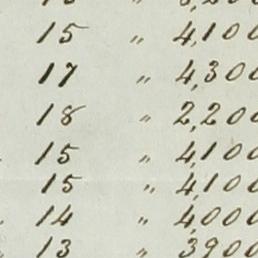 15 " 4,100
17 " 4,300
18 " 2,200
15 " 4,100
15 " 4,100
14 " 4,000
13 " 3900